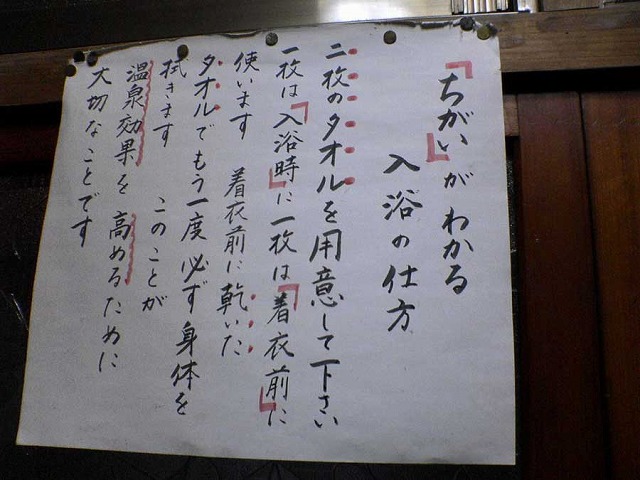 「ちがい」がわかる
入浴の仕方
二枚のタオルを用意して下さい
一枚は「入浴時」に一枚は「着衣前」に
使います 着衣前に乾いた
タオルでもう一度必ず身体を
拭きます このことが
温泉効果を高めるために
大切なことです